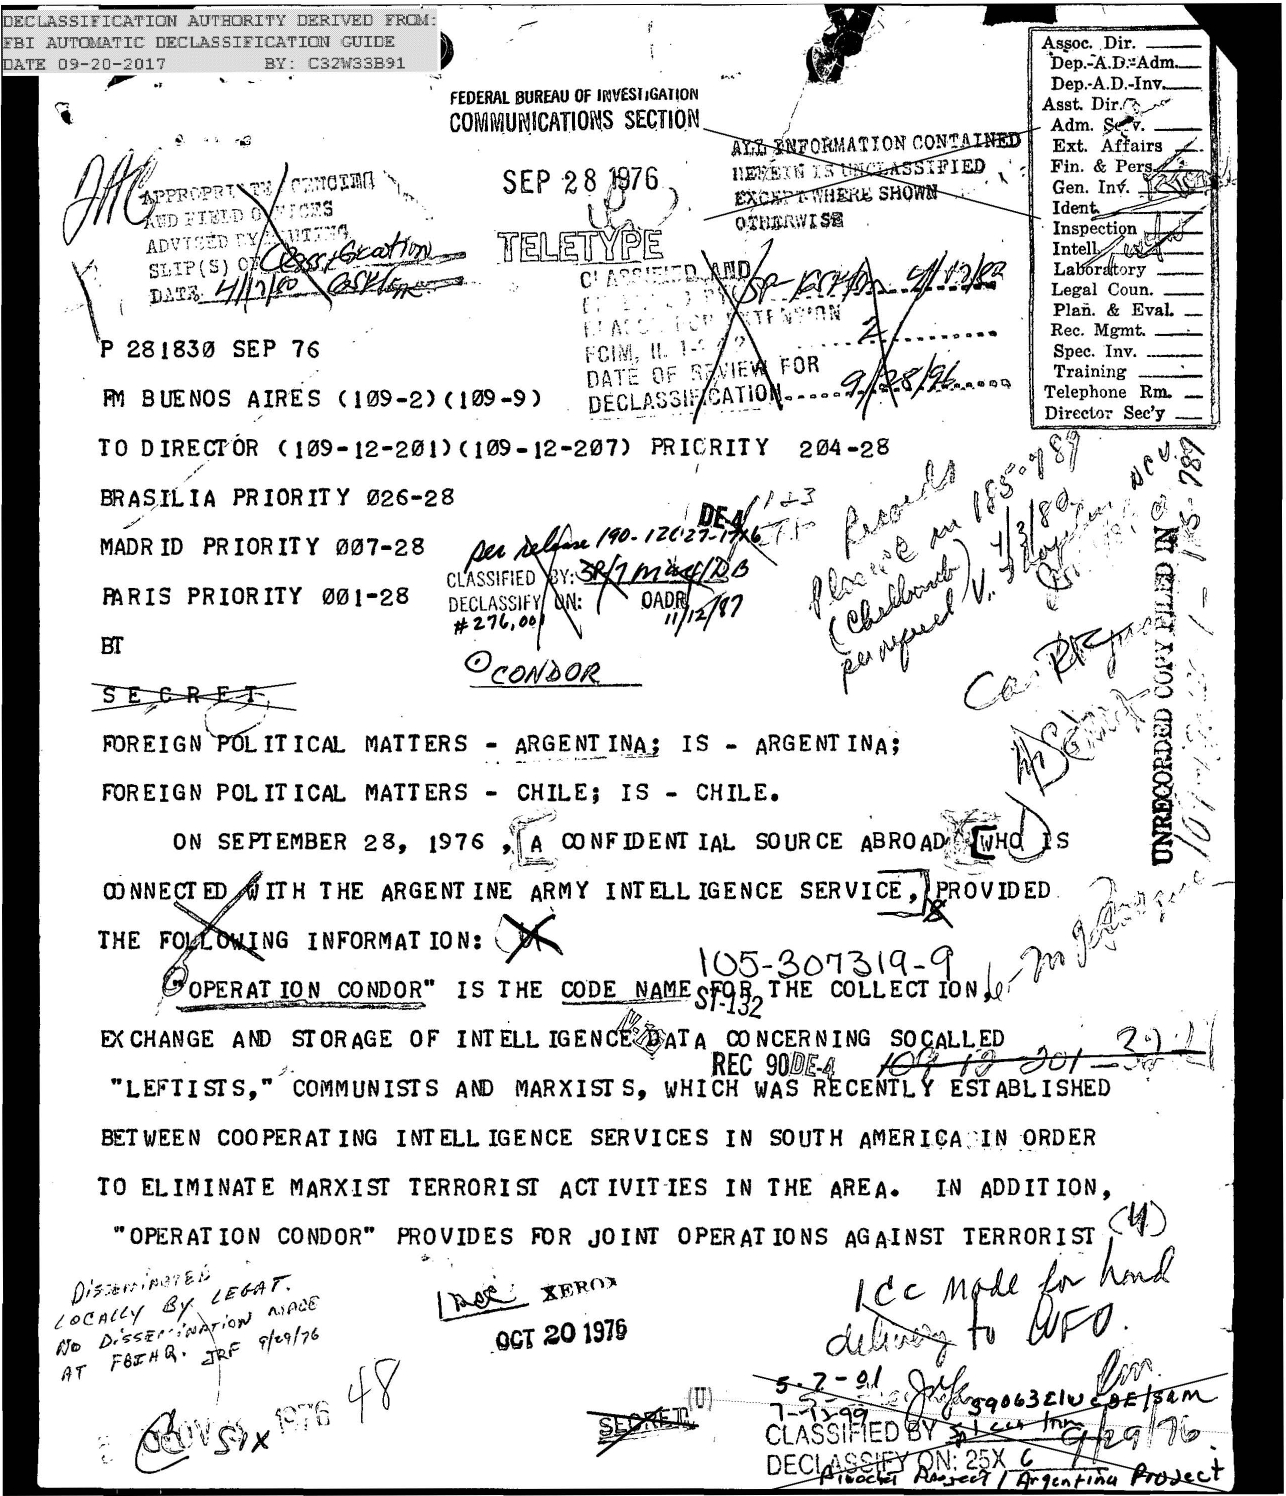 DECLASSIFICATION AUTHORITY DERIVED FROM:
FBI AUTOMATIC DECLASSIFICATION GUIDE
DATE 09-20-2017 BY: C32W33B91
Assoc. Dir.
Dep.-A.D.-Adm.
Dep.-A.D.-Inv.
Asst. Dir.:
Adm. Serv.
Ext. Affairs
Fin. & Pers.
Gen. Inv.
Ident.
Inspection
Intell.
Laboratory
Legal Coun.
Plan. & Eval.
Rec. Mgmt.
Spec. Inv.
Training
Telephone Rm.
Director Sec'y
FEDERAL BUREAU OF INVESTIGATION
COMMUNICATIONS SECTION
SEP 28 1976
TELETYPE
ALL INFORMATION CONTAINED
HEREIN IS UNCLASSIFIED
EXCEPT WHERE SHOWN
OTHERWISE
APPROPRIATE AGENCIES
AND FIELD OFFICES
ADVISED BY ROUTING
SLIP(S) OF Classification
DATE 4/17/80
CLASSIFIED AND
4/17/80
REASON FOR EXTENSION
FCIM, II, 1-2.4.2 2
DATE OF REVIEW FOR
DECLASSIFICATION 9/28/96
P 281830 SEP 76
FM BUENOS AIRES (109-2)(109-9)
TO DIRECTOR (109-12-201)(109-12-207) PRIORITY 204-28
BRASILIA PRIORITY 026-28
MADRID PRIORITY 007-28
PARIS PRIORITY 001-28
BT
DE-4
per release 190-12C27-17X6
CLASSIFIED BY:
DECLASSIFY ON: OADR
11/12/87
#276,001
CONDOR
Records
Please in 185-789
per request
UNRECORDED COPY FILED IN 185-789
SECRET
FOREIGN POLITICAL MATTERS - ARGENTINA; IS - ARGENTINA;
FOREIGN POLITICAL MATTERS - CHILE; IS - CHILE.
ON SEPTEMBER 28, 1976, A CONFIDENTIAL SOURCE ABROAD WHO IS
CONNECTED WITH THE ARGENTINE ARMY INTELLIGENCE SERVICE, PROVIDED
THE FOLLOWING INFORMATION:
105-307319-9
"OPERATION CONDOR" IS THE CODE NAME FOR THE COLLECTION,
ST-132
EXCHANGE AND STORAGE OF INTELLIGENCE DATA CONCERNING SOCALLED
REC 90 DE-4 109-12-201-
"LEFTISTS," COMMUNISTS AND MARXISTS, WHICH WAS RECENTLY ESTABLISHED
BETWEEN COOPERATING INTELLIGENCE SERVICES IN SOUTH AMERICA IN ORDER
TO ELIMINATE MARXIST TERRORIST ACTIVITIES IN THE AREA. IN ADDITION,
"OPERATION CONDOR" PROVIDES FOR JOINT OPERATIONS AGAINST TERRORIST
(4)
DISSEMINATED
LOCALLY BY LEGAT.
NO DISSEMINATION MADE
AT FBIHQ. JRF 9/29/76
XEROX
OCT 20 1976
1 cc made for hand
delivery to WFO.
NOV 1976
48
SECRET
(U)
5-7-01
7-12-99
CLASSIFIED BY
9/29/76
DECLASSIFY ON: 25X 6
Pinochet Project / Argentina Project